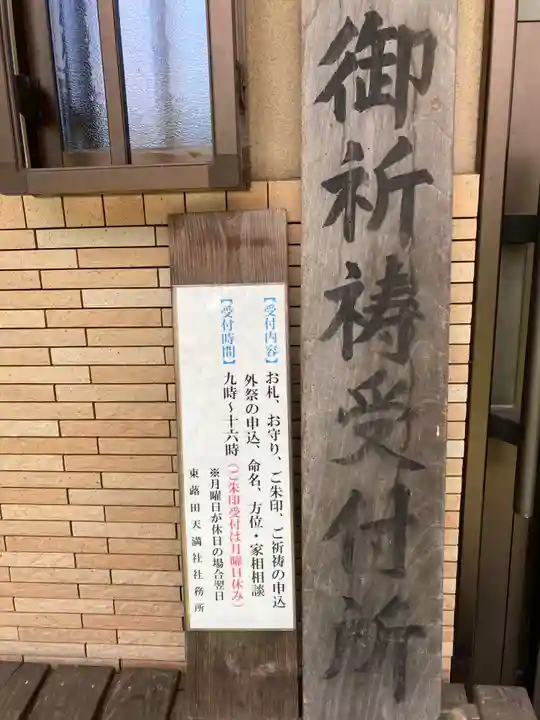 御祈祷受付所
【受付内容】お札、お守り、ご朱印、ご祈祷の申込
外祭の申込、命名、方位・家相相談
【受付時間】九時～十六時(ご朱印受付は月曜日休み)
※月曜日が休日の場合翌日
東蕗田天満社社務所